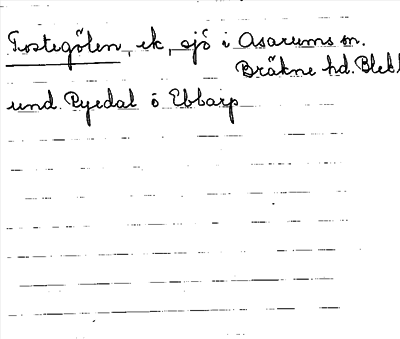 Tostegölen, ek, sjö i Asarums sn.
Bräkne hd. Blek
und. Ryedal o Ebbarp